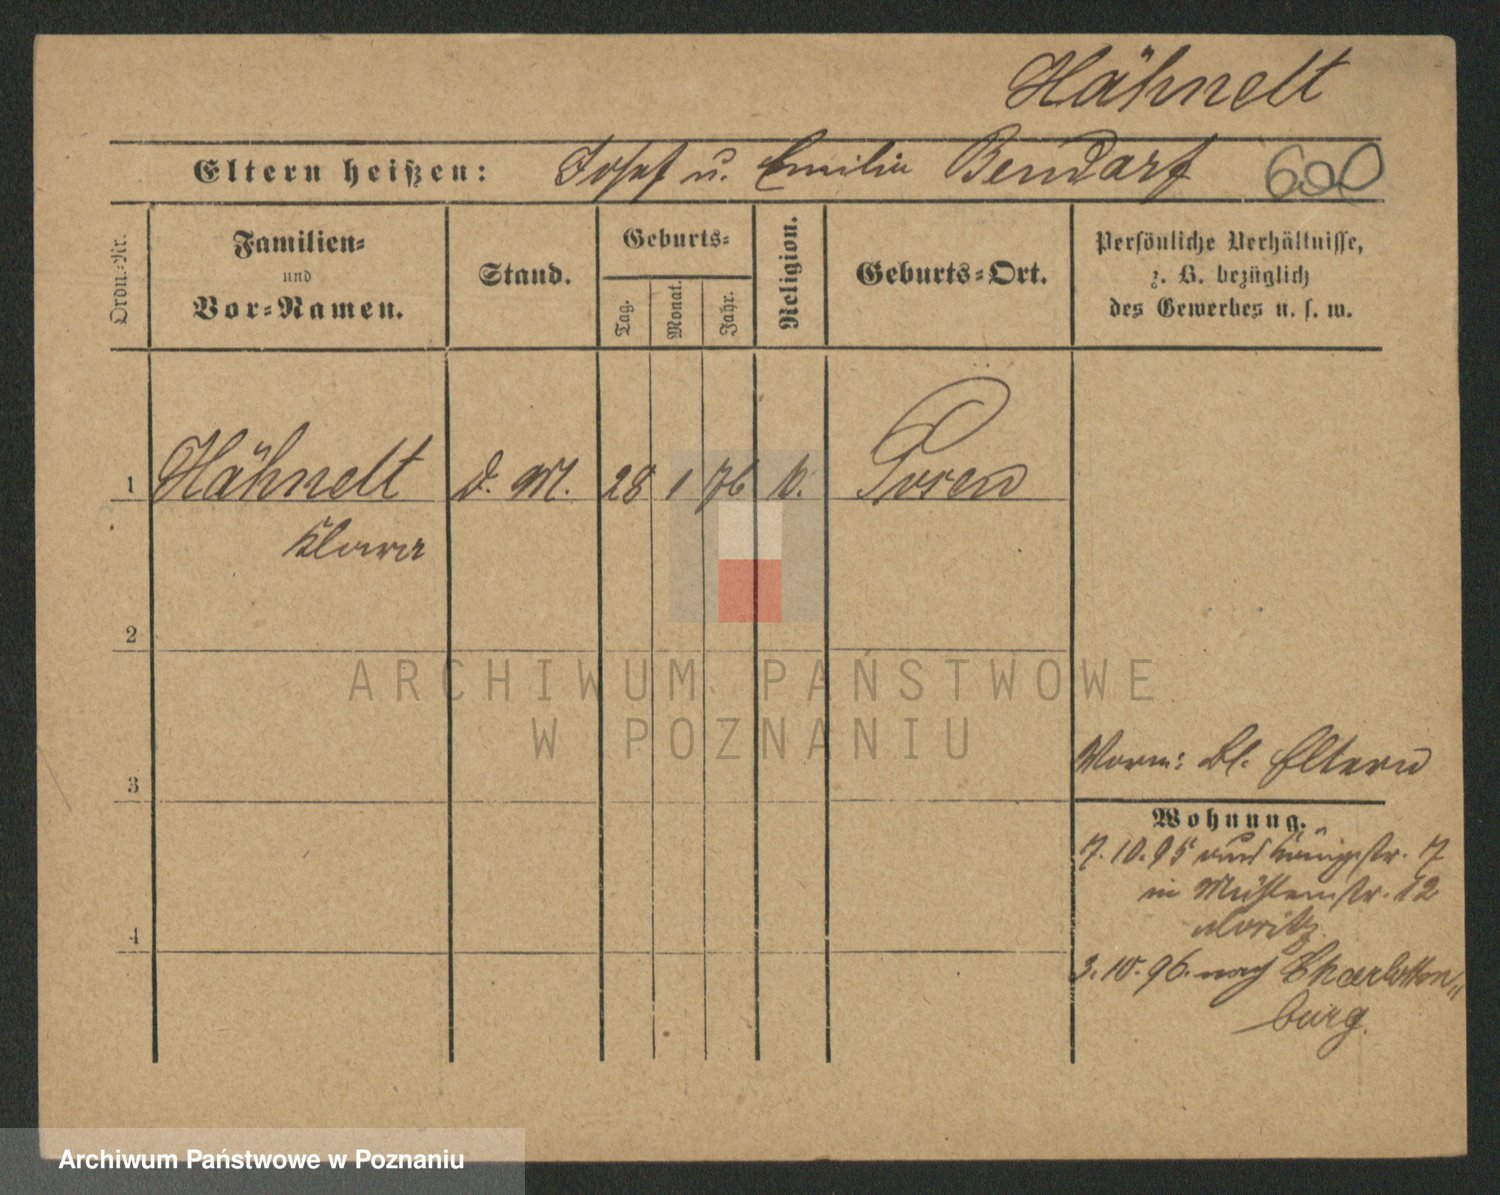 Hähnelt
Eltern heißen: Josef u. Emilie Bendorf 600
Ordn.-Nr.
Familien-
und
Vor-Namen.
Stand.
Geburts-
Tag.
Monat.
Jahr.
Religion.
Geburts-Ort.
Persönliche Verhältnisse,
z. B. bezüglich
des Gewerbes u. s. w.
1 Hähnelt d. M. 28 1 76 k. Posen
Klara
2
ARCHIWUM PAŃSTWOWE
W POZNANIU
3
Vorm: Bl. Eltern
Wohnung.
7.10.95 aus Königstr. 7
in Mühlenstr. 12
Moritz.
4
3.10.96. nach Charlotten„
burg.
Archiwum Państwowe w Poznaniu